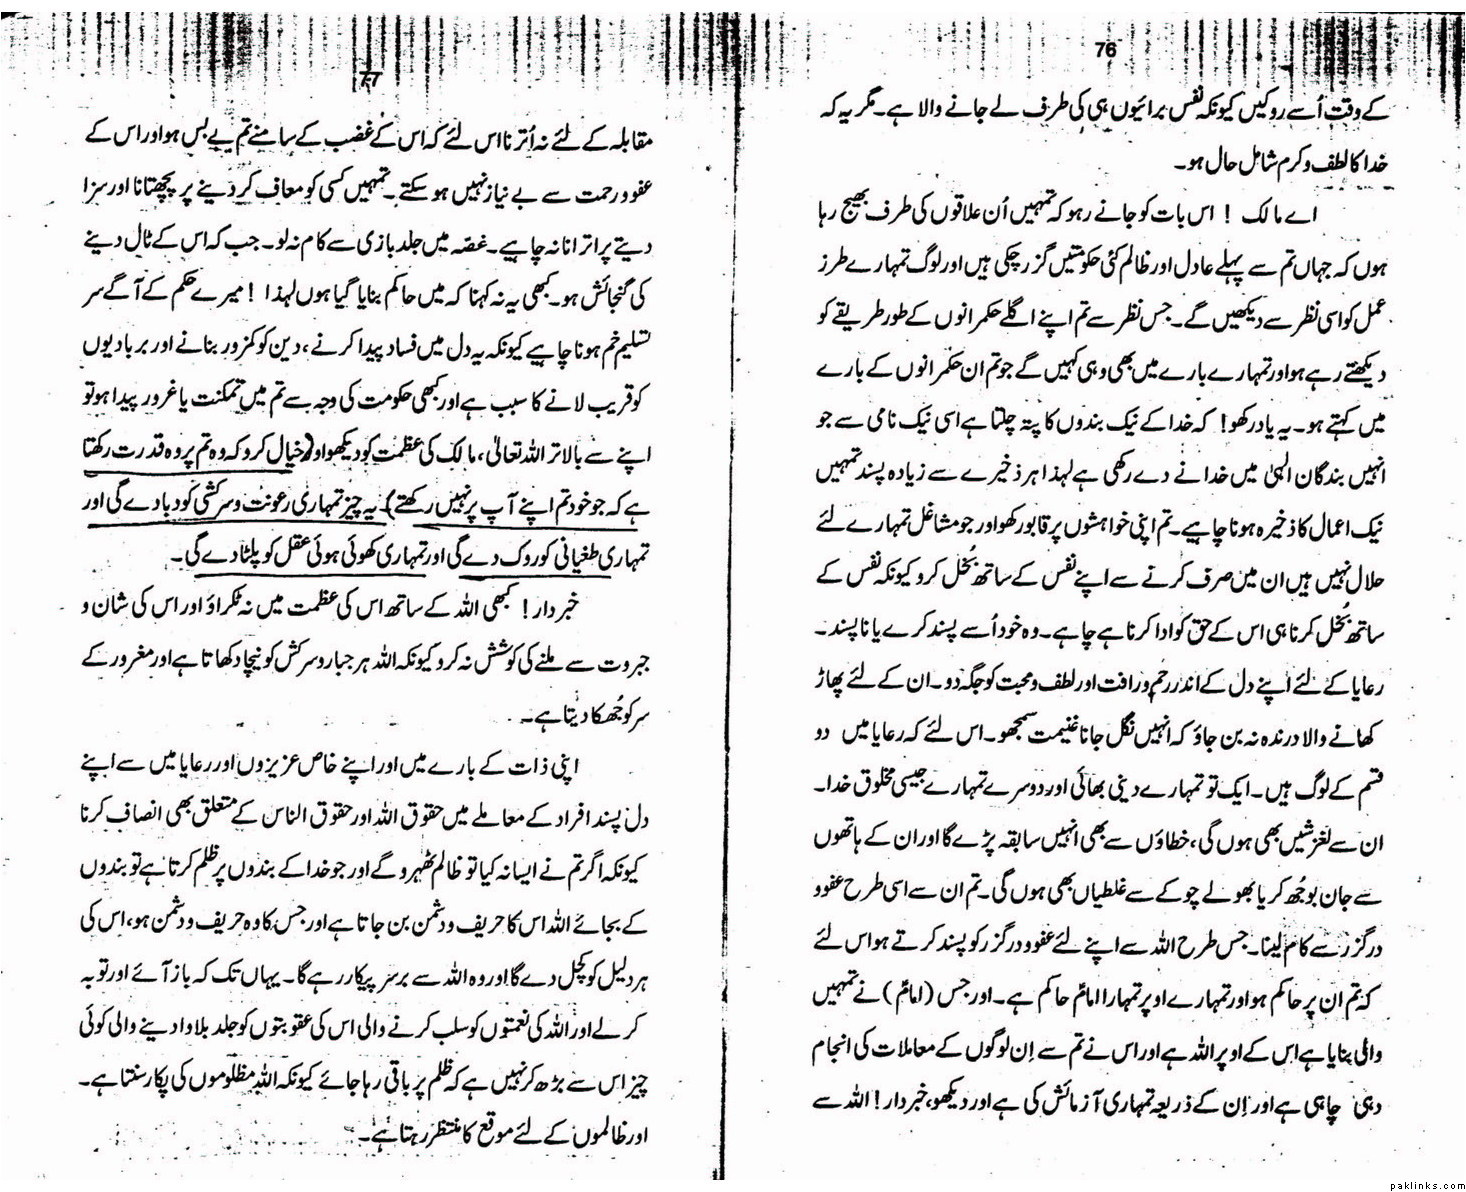 76
کے وقت اُسے روکیں کیونکہ نفس برائیوں ہی کی طرف لے جانے والا ہے۔ مگر یہ کہ
خدا کا لطف و کرم شامل حال ہو۔
اے مالک ! اس بات کو جانے رہو کہ تمہیں اُن علاقوں کی طرف بھیج رہا
ہوں کہ جہاں تم سے پہلے عادل اور ظالم کئی حکومتیں گزر چکی ہیں اور لوگ تمہارے طرز
عمل کو اسی نظر سے دیکھیں گے۔ جس نظر سے تم اپنے اگلے حکمرانوں کے طور طریقے کو
دیکھتے رہے ہو اور تمہارے بارے میں بھی وہی کہیں گے جو تم ان حکمرانوں کے بارے
میں کہتے ہو۔ یہ یاد رکھو! کہ خدا کے نیک بندوں کا پتہ چلتا ہے اسی نیک نامی سے جو
انہیں بندگان الہٰی میں خدا نے دے رکھی ہے لہذا ہر ذخیرے سے زیادہ پسند تمہیں
نیک اعمال کا ذخیرہ ہونا چاہیے۔ تم اپنی خواہشوں پر قابو رکھو اور جو مشاغل تمہارے لئے
حلال نہیں ہیں ان میں صرف کرنے سے اپنے نفس کے ساتھ بُخل کرو کیونکہ نفس کے
ساتھ بُخل کرنا ہی اس کے حق کو ادا کرنا ہے چاہے۔ وہ خود اُسے پسند کرے یا نا پسند۔
رعایا کے لئے اپنے دل کے اندر رحم و رافت اور لطف و محبت کو جگہ دو۔ ان کے لئے پھاڑ
کھانے والا درندہ نہ بن جاؤ کہ انہیں نگل جانا غنیمت سمجھو۔ اس لئے کہ رعایا میں دو
قسم کے لوگ ہیں۔ ایک تو تمہارے دینی بھائی اور دوسرے تمہارے جیسی مخلوق خدا۔
ان سے لغزشیں بھی ہوں گی، خطاؤں سے بھی انہیں سابقہ پڑے گا اور ان کے ہاتھوں
سے جان بوجُھ کر یا بھولے چوکے سے غلطیاں بھی ہوں گی۔ تم ان سے اسی طرح عفو و
درگزر سے کام لینا۔ جس طرح اللہ سے اپنے لئے عفو و درگزر کو پسند کرتے ہو اس لئے
کہ تم ان پر حاکم ہو اور تمہارے اوپر تمہارا امامؑ حاکم ہے۔ اور جس (امامؑ) نے تمہیں
والی بنایا ہے اس کے اوپر اللہ ہے اور اس نے تم سے اِن لوگوں کے معاملات کی انجام
دہی چاہی ہے اور اِن کے ذریعہ تمہاری آزمائش کی ہے اور دیکھو، خبردار! اللہ سے
77
مقابلہ کے لئے نہ اُترنا اس لئے کہ اس کے غضب کے سامنے تم بے بس ہو اور اس کے
عفو و رحمت سے بے نیاز نہیں ہو سکتے۔ تمہیں کسی کو معاف کر دینے پر پچھتانا اور سزا
دیتے پر اترانا نہ چاہیے۔ غصّہ میں جلد بازی سے کام نہ لو۔ جب کہ اس کے ٹال دینے
کی گنجائش ہو۔ کبھی یہ نہ کہنا کہ میں حاکم بنایا گیا ہوں لہذا ! میرے حکم کے آگے سر
تسلیم خم ہونا چاہیے کیونکہ یہ دل میں فساد پیدا کرنے، دین کو کمزور بنانے اور بربادیوں
کو قریب لانے کا سبب ہے اور کبھی حکومت کی وجہ سے تم میں تمکنت یا غرور پیدا ہو تو
اپنے سے بالاتر اللہ تعالیٰ، مالک کی عظمت کو دیکھو اور (خیال کرو کہ وہ تم پر وہ قدرت رکھتا
ہے کہ جو خود تم اپنے آپ پر نہیں رکھتے) یہ چیز تمہاری رعونت و سرکشی کو دبا دے گی اور
تمہاری طغیانی کو روک دے گی اور تمہاری کھوئی ہوئی عقل کو پلٹا دے گی۔
خبردار! کبھی اللہ کے ساتھ اس کی عظمت میں نہ ٹکراؤ اور اس کی شان و
جبروت سے ملنے کی کوشش نہ کرو کیونکہ اللہ ہر جبار و سرکش کو نیچا دکھاتا ہے اور مغرور کے
سر کو جُھکا دیتا ہے۔
اپنی ذات کے بارے میں اور اپنے خاص عزیزوں اور رعایا میں سے اپنے
دل پسند افراد کے معاملے میں حقوق اللہ اور حقوق الناس کے متعلق بھی انصاف کرنا
کیونکہ اگر تم نے ایسا نہ کیا تو ظالم ٹھہرو گے اور جو خدا کے بندوں پر ظلم کرتا ہے تو بندوں
کے بجائے اللہ اس کا حریف و دشمن بن جاتا ہے اور جس کا وہ حریف و دشمن ہو، اس کی
ہر دلیل کو کچل دے گا اور وہ اللہ سے برسر پیکار رہے گا۔ یہاں تک کہ باز آئے اور توبہ
کر لے اور اللہ کی نعمتوں کو سلب کرنے والی اس کی عقوبتوں کو جلد بلاوا دینے والی کوئی
چیز اس سے بڑھ کر نہیں ہے کہ ظلم پر باقی رہا جائے کیونکہ اللہ مظلوموں کی پکار سنتا ہے۔
اور ظالموں کے لئے موقع کا منتظر رہتا ہے۔
paklinks.com